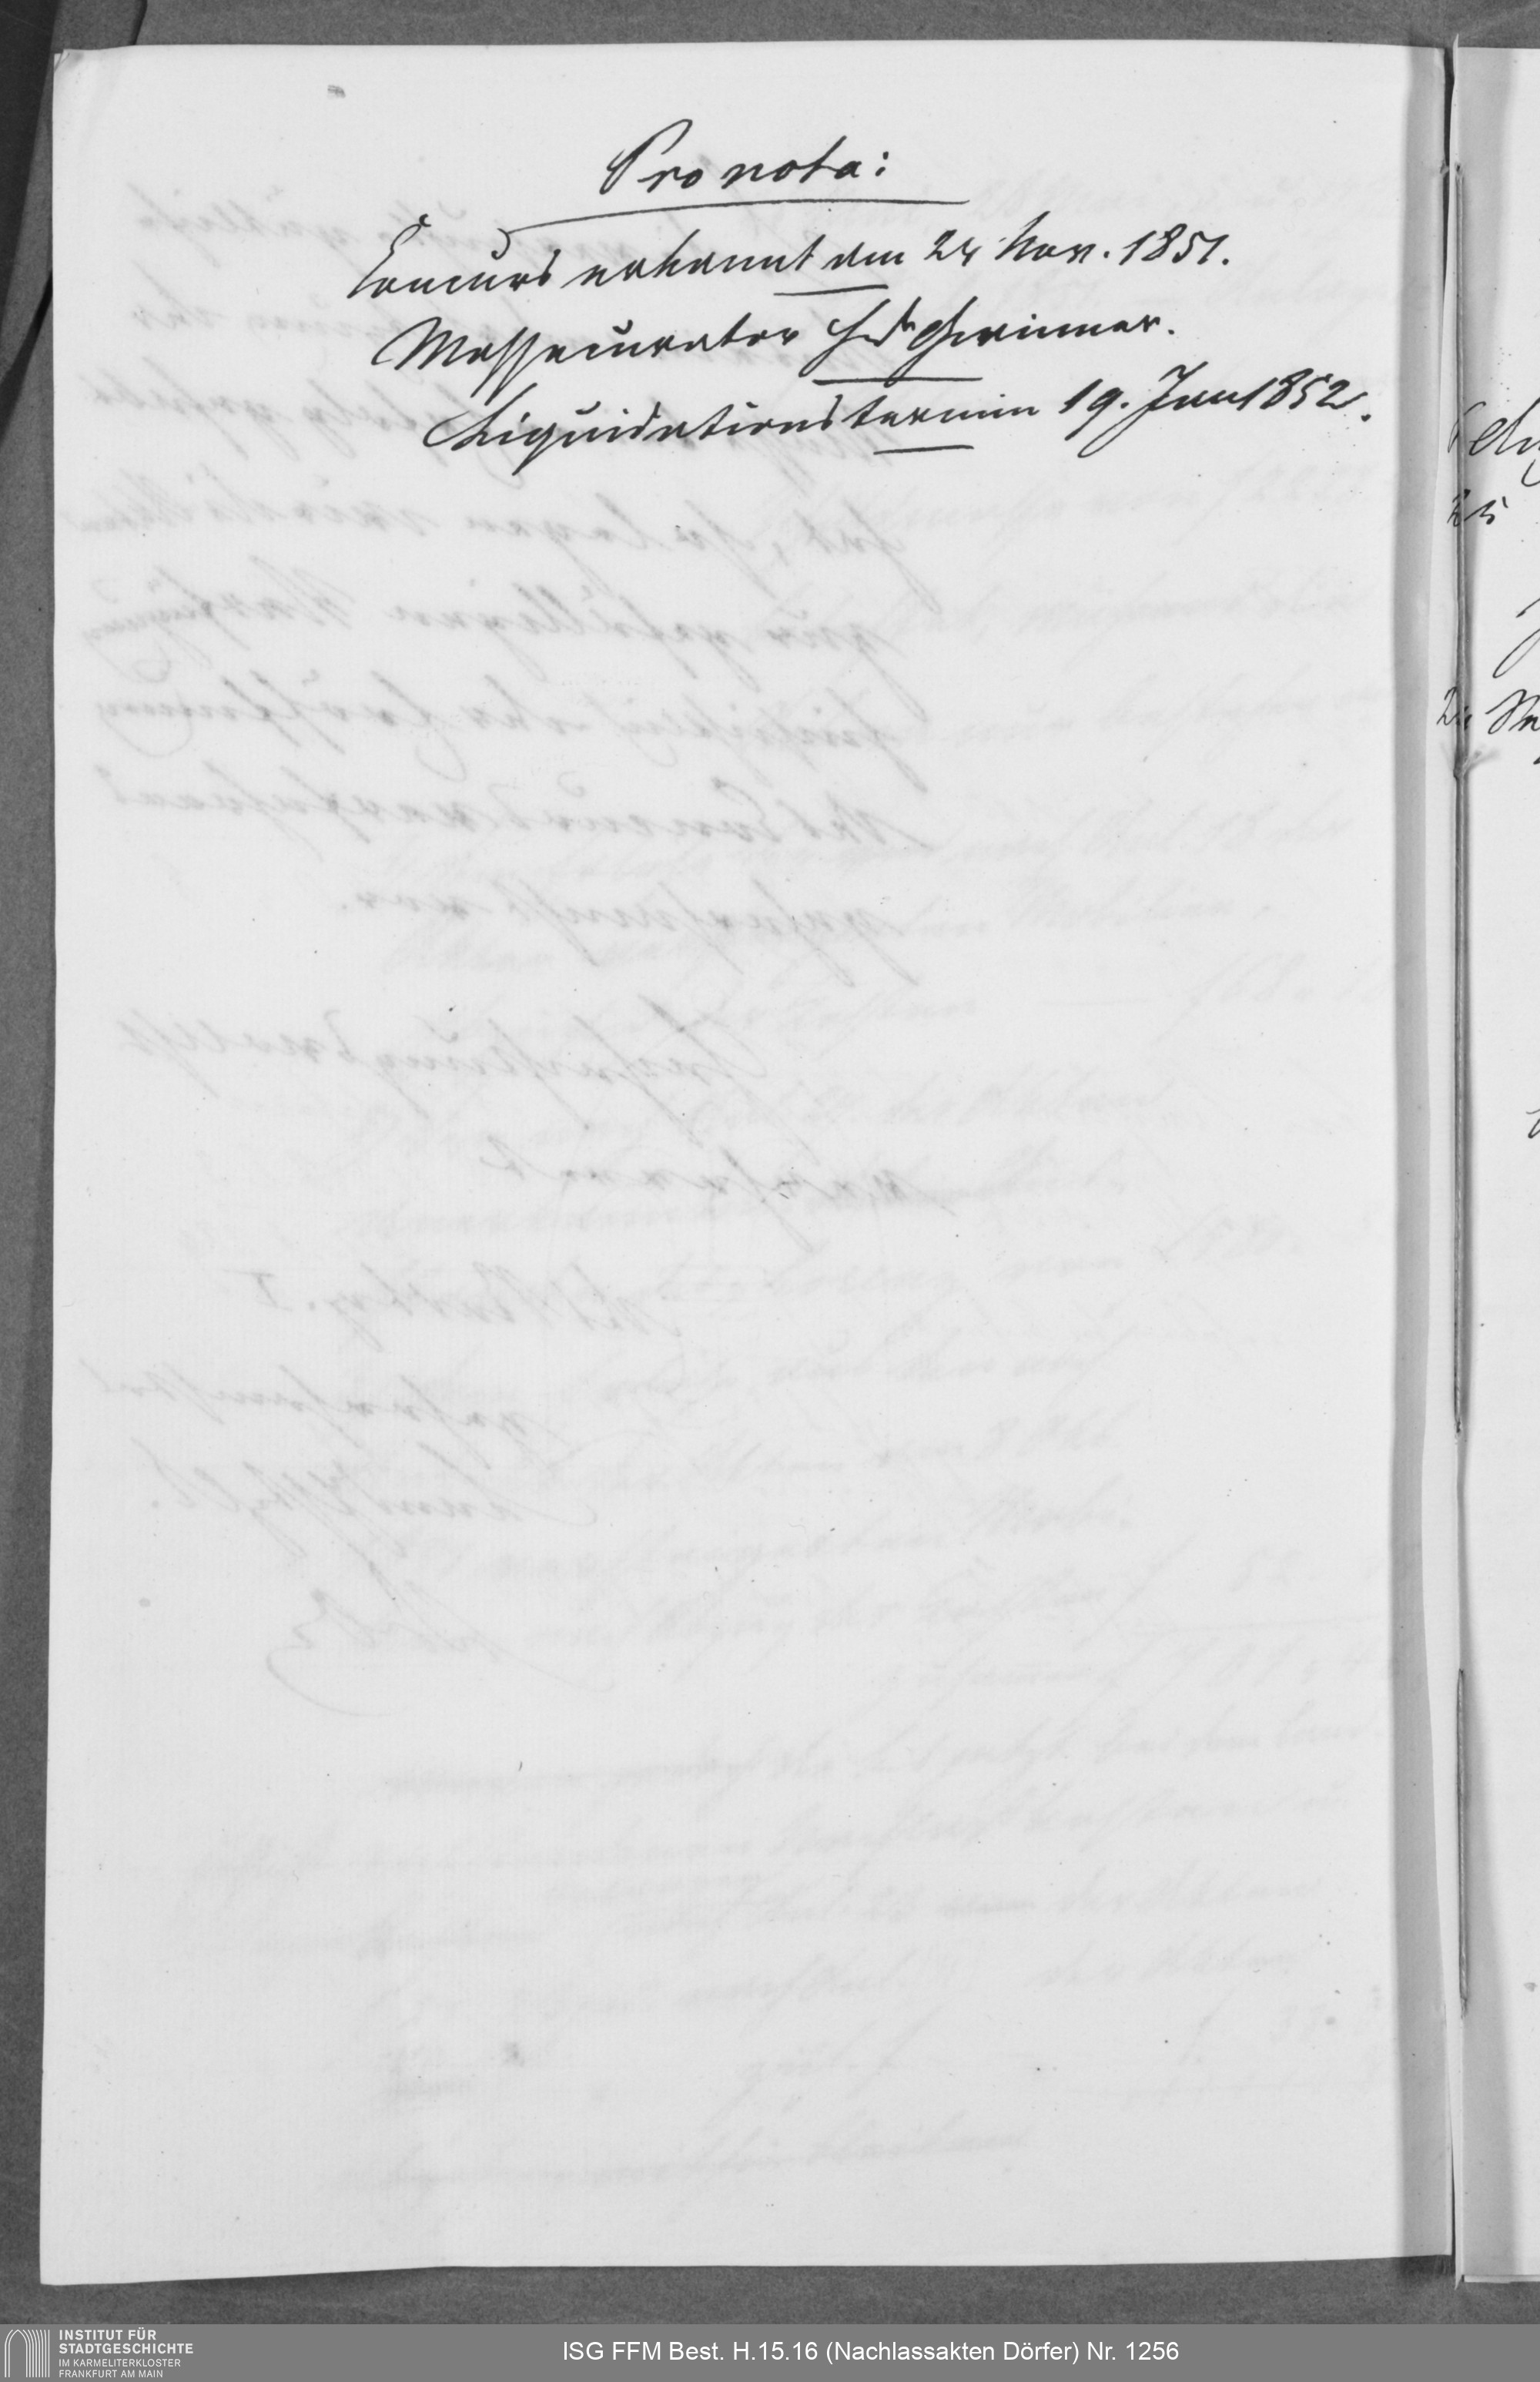 Pro nota:
Concurs erkannt den 24 Nov. 1851.
Massecurator H Dr Gwinner.
Liquidationstermin 19. Jan 1852.
INSTITUT FÜR
STADTGESCHICHTE
IM KARMELITERKLOSTER
FRANKFURT AM MAIN
ISG FFM Best. H.15.16 (Nachlassakten Dörfer) Nr. 1256